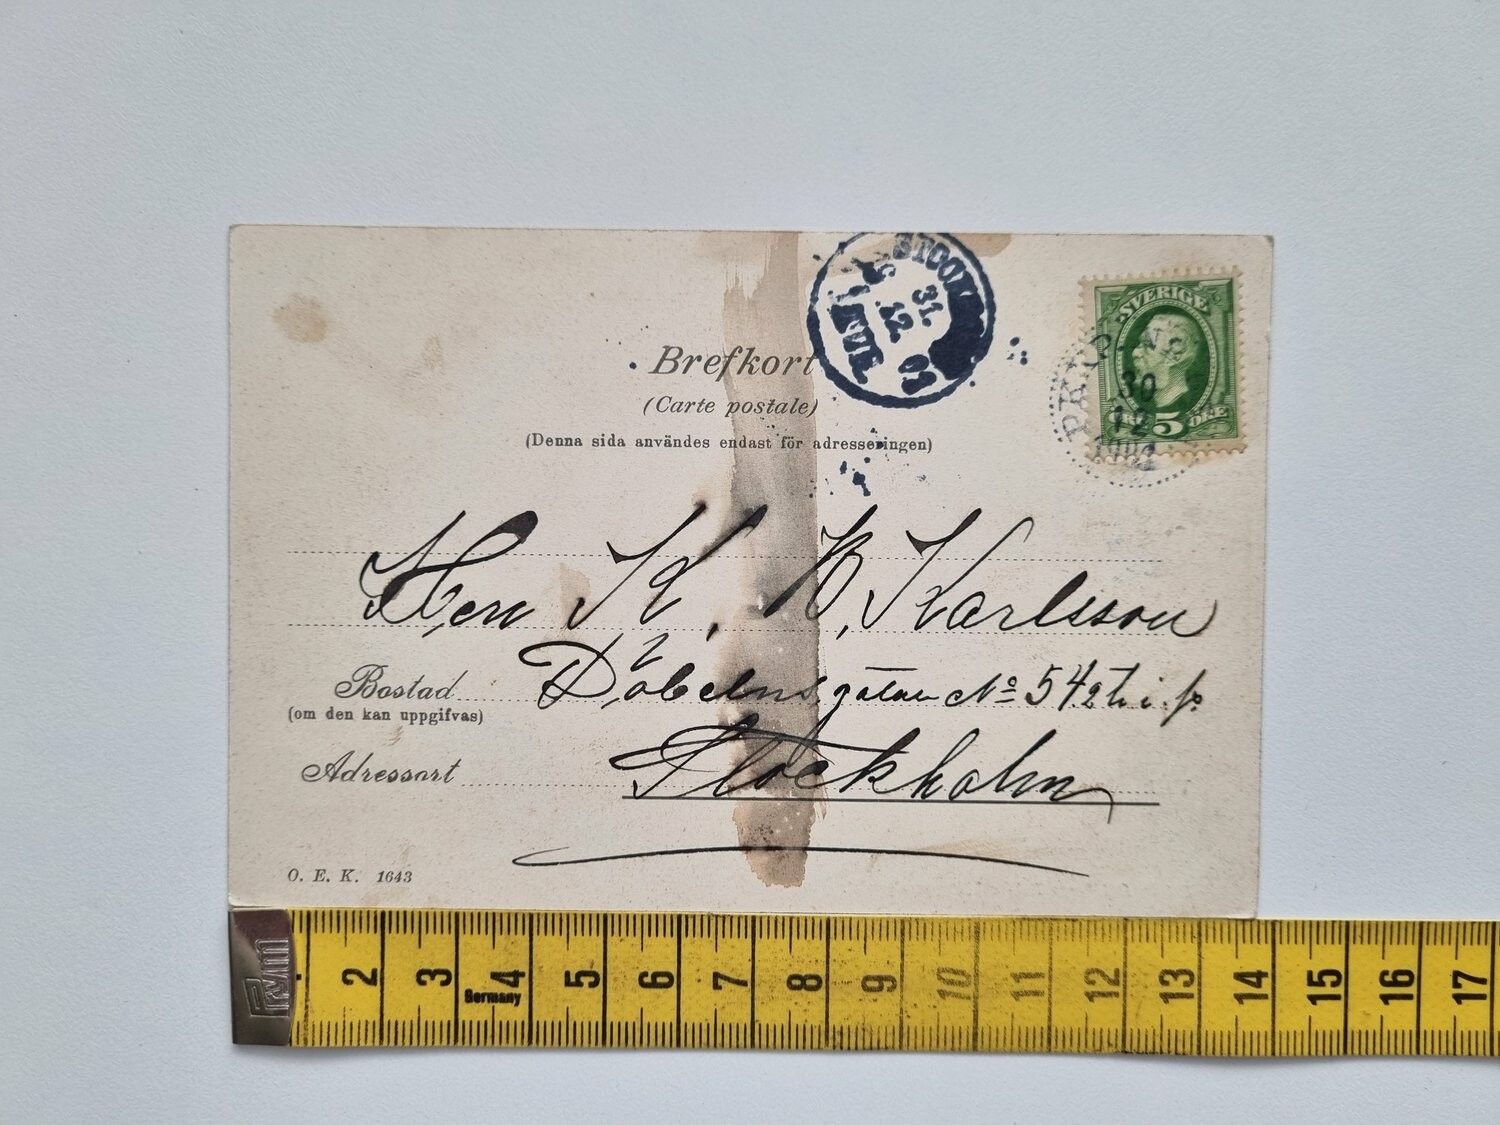 STOCK
31.
12.
02
Brefkort
(Carte postale)
(Denna sida användes endast för adresseringen)
SVERIGE
5 ÖRE
30
12
Herr K. B. Karlsson
Döbelnsgatan No 54 2 tr. i.
Bostad
(om den kan uppgifvas)
Stockholm
Adressort
O. E. K. 1643
Prym
2 3 4 5 6 7 8 9 10 11 12 13 14 15 16 17
Germany